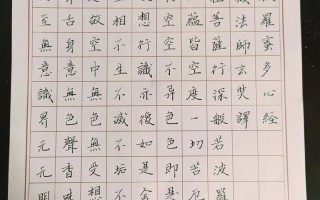 羅蜜多心經
法師玄奘譯
菩薩行深般若波羅
蘊皆空度一切苦厄
空空不異色色即是
想行識亦復如是舍
相不生不滅不垢不
故空中無色無受想
舌身意無色聲香味
至無意識界无无明